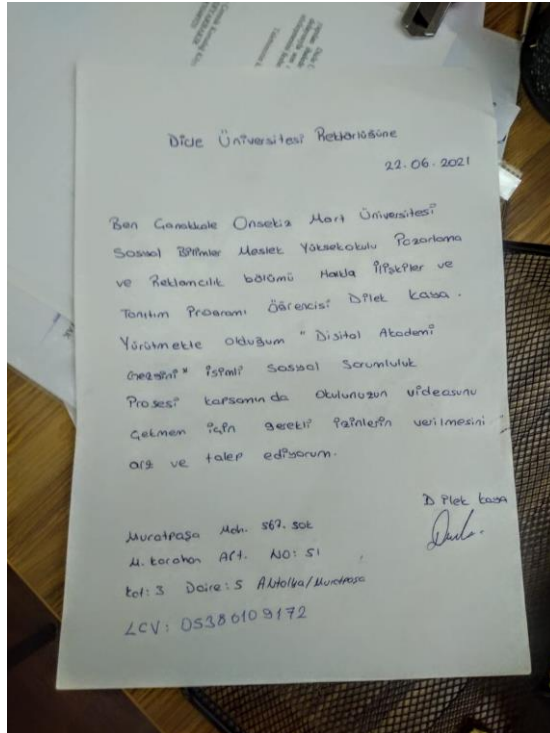 Dicle Üniversitesi Rektörlüğüne
22.06.2021
Ben Çanakkale Onsekiz Mart Üniversitesi
Sosyal Bilimler Meslek Yüksekokulu Pazarlama
ve Reklamcılık bölümü Halkla İlişkiler ve
Tanıtım Programı Öğrencisi Dilek Kaya.
Yürütmekte olduğum "Digital Akademi
Gezgini" isimli Sosyal Sorumluluk
Prosesi kapsamında Okulunuzun videosunu
çekmem için gerekli izinlerin verilmesini
arz ve talep ediyorum.
Dilek Kaya
Muratpaşa Mah. 567. sok
M. Karahan Apt. NO: 51
kat: 3 Daire: 5 Antalya/Muratpaşa
LCV: 05386109172